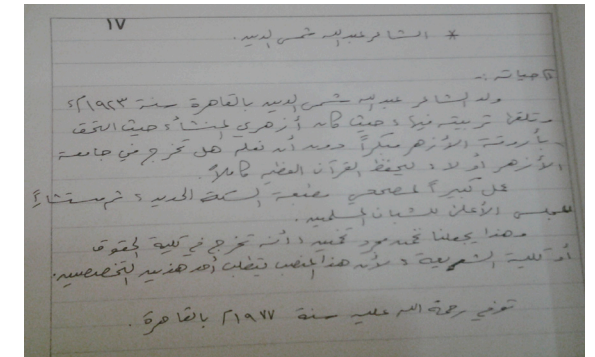 ١٧
* الشاعر عبد الله شمس الدين.
حياته :-
ولد الشاعر عبد الله شمس الدين بالقاهرة سنة ١٩٢٣م،
وتلقى تربيته فيها، حيث كان أزهري المنشأ، حيث التحق
بأروقة الأزهر مبكراً دون أن نعلم هل تخرج في جامعة
الأزهر أو لا، ليحفظ القرآن العظيم كاملاً.
عمل كبيراً لمصححي مطبعة السكة الحديد، ثم مستشاراً
للمجلس الأعلى للشبان المسلمين.
وهذا يجعلنا نخمن مجرد تخمين، أنه تخرج في كلية الحقوق
أو كلية الشريعة، لأن هذا المنصب يتطلب أحد هذين التخصصين.
توفي رحمة الله عليه سنة ١٩٧٧م بالقاهرة.